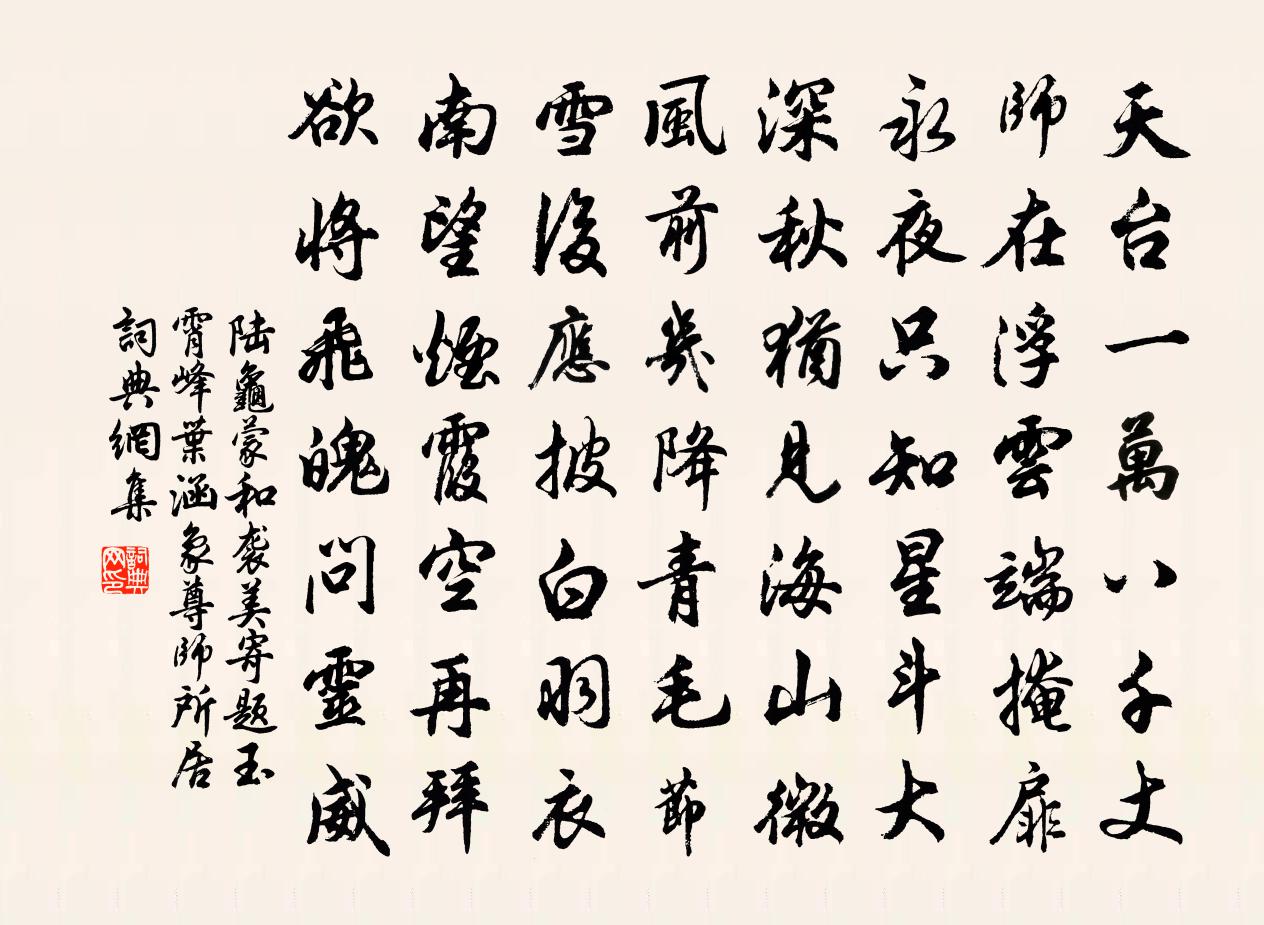 天台一萬八千丈
師在浮雲端掩扉
永夜只知星斗大
深秋猶見海山微
風前幾降青毛節
雪後應披白羽衣
南望煙霞空再拜
欲將飛魄問靈威
陆龜蒙和袭美寄题玉
霄峰葉涵象尊師所居
詞典網集
詞典网印